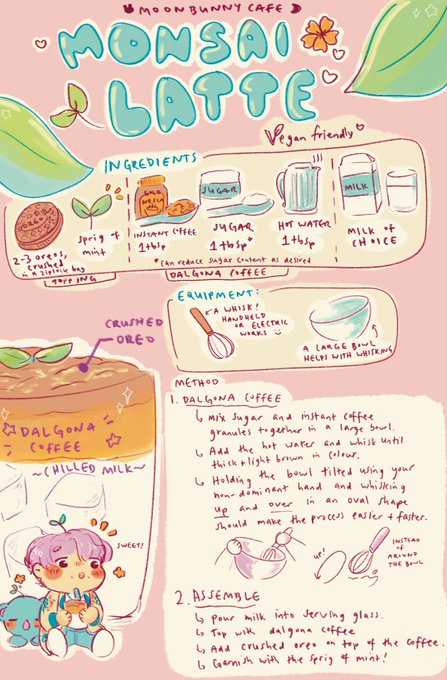 MOONBUNNY CAFE
MONSAI
LATTE
Vegan friendly
INGREDIENTS
2-3 oreos,
crushed
in a ziplock bag
sprig of
mint
TOPPING
GOLD
NESCA
INSTANT COFFEE
1 tbsp
SUGAR
SUGAR
1 tbsp*
HOT WATER
1 tbsp
*can reduce sugar content as desired
DALGONA COFFEE
MILK
MILK OF
CHOICE
EQUIPMENT:
A WHISK!
HANDHELD
OR ELECTRIC
WORKS
A LARGE BOWL
HELPS WITH WHISKING
CRUSHED
OREO
DALGONA
COFFEE
~CHILLED MILK~
SWEET!
METHOD
1. DALGONA COFFEE
↳ Mix sugar and instant coffee
granules together in a large bowl.
↳ Add the hot water and whisk until
thick + light brown in colour.
↳ Holding the bowl tilted using your
non-dominant hand and whisking
up and over in an oval shape
should make the process easier + faster.
up!
INSTEAD
OF
AROUND
THE BOWL
2. ASSEMBLE
↳ Pour milk into serving glass.
↳ Top with dalgona coffee
↳ Add crushed oreo on top of the coffee.
↳ Garnish with the sprig of mint!